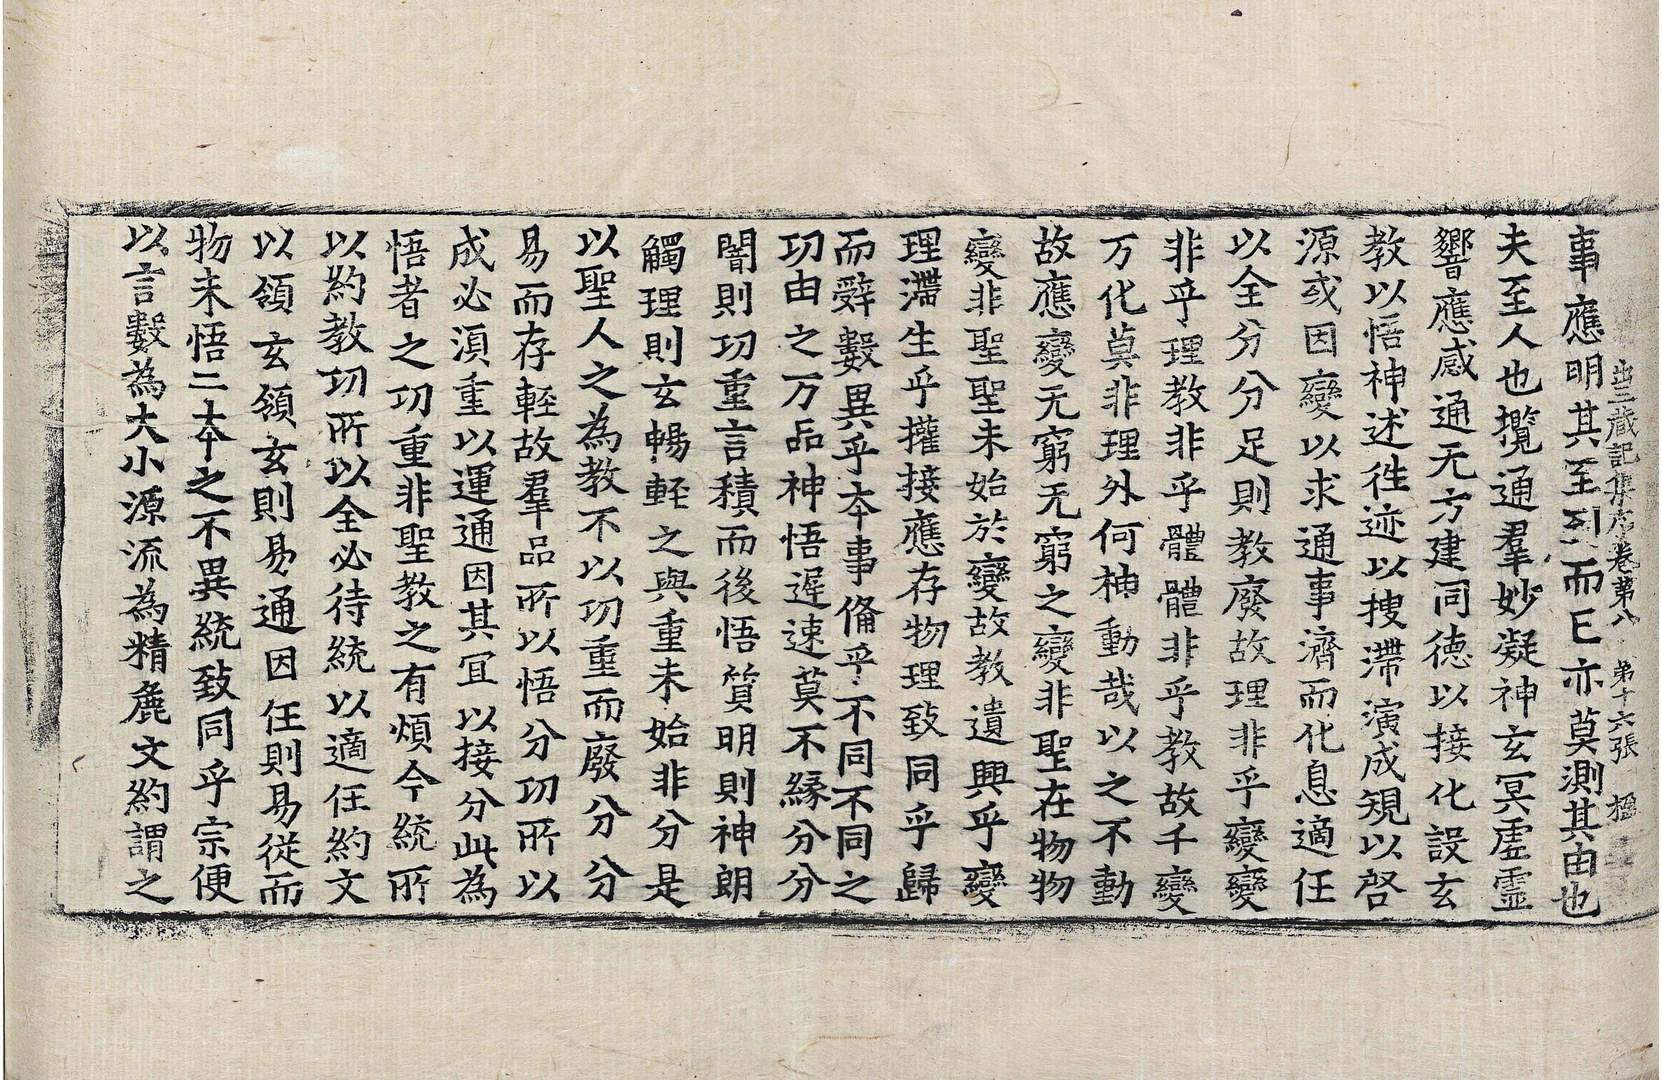 出三藏記集序卷第八 第十六張 楹
事應明其至到而已亦莫測其由也
夫至人也攬通羣妙凝神玄冥虛靈
響應感通无方建同德以接化設玄
教以悟神述徃迹以搜滯演成規以啓
源或因變以求通事濟而化息適任
以全分分足則教廢故理非乎變變
非乎理教非乎體體非乎教故千變
万化莫非理外何神動哉以之不動
故應變无窮无窮之變非聖在物物
變非聖聖未始於變故教遺興乎變
理滯生乎權接應存物理致同乎歸
而辤數異乎本事備乎不同不同之
功由之万品神悟遲速莫不緣分分
闇則功重言積而後悟質明則神朗
觸理則玄暢輊之與重未始非分是
以聖人之為教不以功重而廢分分
易而存輊故羣品所以悟分功所以
成必湏重以運通因其冝以接分此為
悟者之功重非聖教之有煩今統所
以約教功所以全必待統以適任約文
以領玄領玄則易通因任則易從而
物未悟二本之不異統致同乎宗便
以言數為大小源流為精麁文約謂之